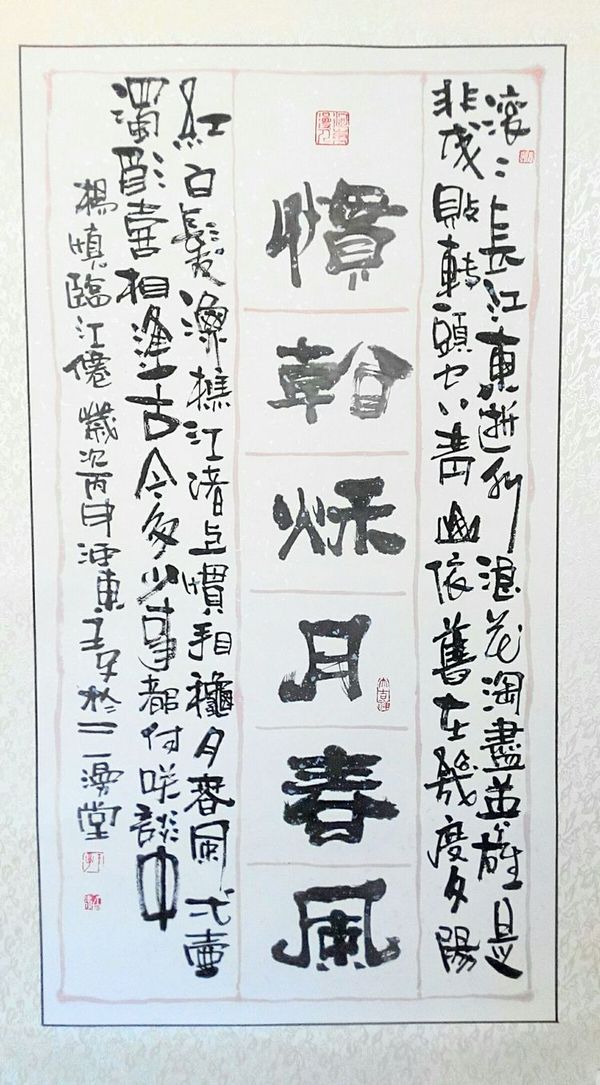 滚〻長江東逝水浪花淘盡英雄是
非成敗轉頭空青山依舊在幾度夕陽
慣看秌月春風
紅白髮漁樵江渚上慣看穐月春風弌壺
濁酒喜相逢古今多少事都付咲談中
楊慎臨江僊歲次丙申河東於漫堂